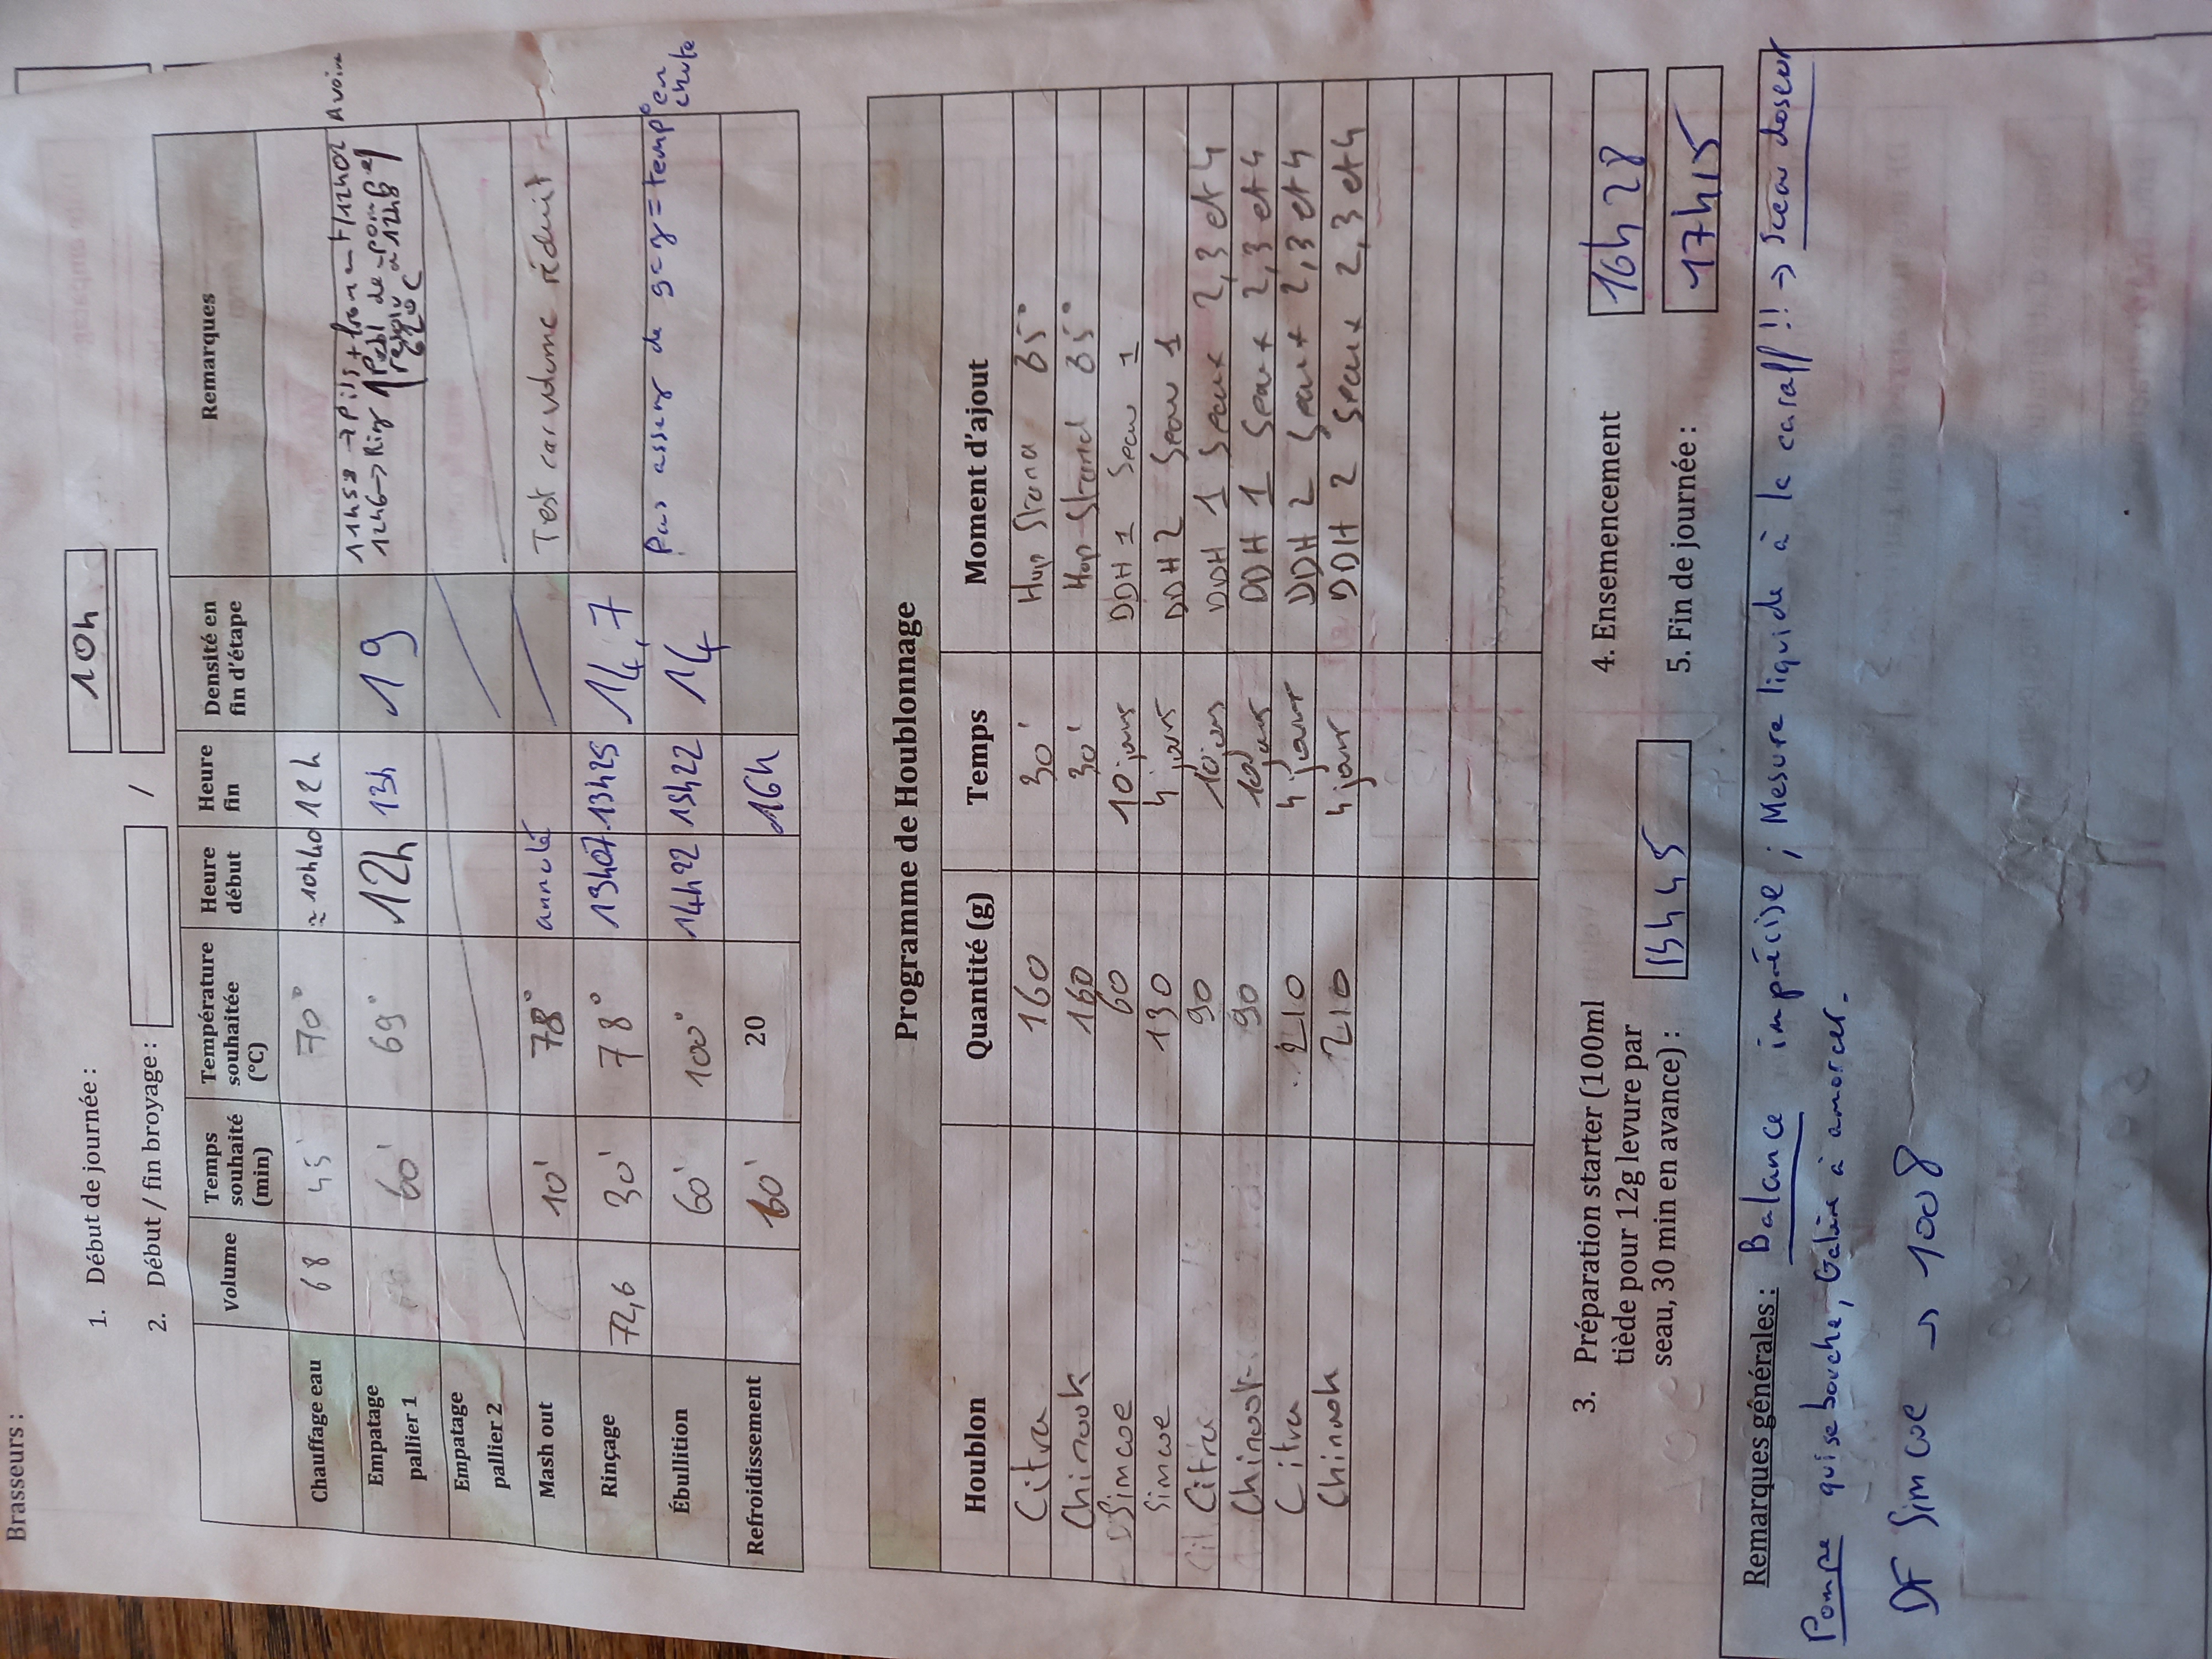 Brasseurs :
1. Début de journée : 10h
2. Début / fin broyage : /
Volume Temps souhaité (min) Température souhaitée (°C) Heure début Heure fin Densité en fin d'étape Remarques
Chauffage eau 68 45' 70° ≈ 10h40 12h
Empatage pallier 1 60' 69° 12h 13h 19 11h58 → Pils + froment / 12h02 Avoine
12h6 → Riz / Probl de pompe
résolu à 12h8
62°C
Empatage pallier 2
Mash out 10' 78° annulé Test car volume réduit
Rinçage 72,6 30' 78° 13h07 13h25 14,7
Ébullition 60' 100° 14h22 15h22 14 Pas assez de gaz = temp° en chute
Refroidissement 60' 20 16h
Programme de Houblonnage
Houblon Quantité (g) Temps Moment d'ajout
Citra 160 30' Hop Stand 85°
Chinook 160 30' Hop Stand 85°
Simcoe 60 10 jours DDH 1 Seau 1
Simcoe 130 4 jours DDH 2 Seau 1
Citra 90 10 jours DDH 1 Seaux 2, 3 et 4
Chinook 90 10 jours DDH 1 Seaux 2, 3 et 4
Citra 210 4 jours DDH 2 Seaux 2, 3 et 4
Chinook 210 4 jours DDH 2 Seaux 2, 3 et 4
3. Préparation starter (100ml
tiède pour 12g levure par
seau, 30 min en avance) : 15h45
4. Ensemencement 16h28
5. Fin de journée : 17h15
Remarques générales : Balance imprécise ; Mesure liquide à la caraff !! → Sceau doseur
Pompe qui se bouche, Galère à amorcer.
DF Simcoe → 1008